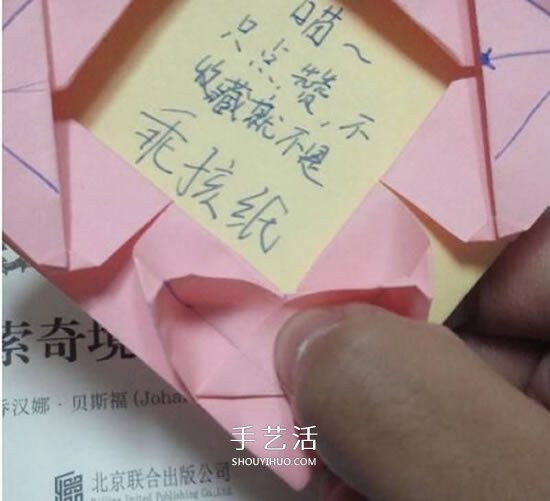 喵～
只点赞,不
收藏就不是
乖孩纸
索奇境
乔汉娜·贝斯福(Joha
北京联合出版公司
Beijing United Publishing Co.,Ltd.
手艺活
SHOUYIHUO.COM